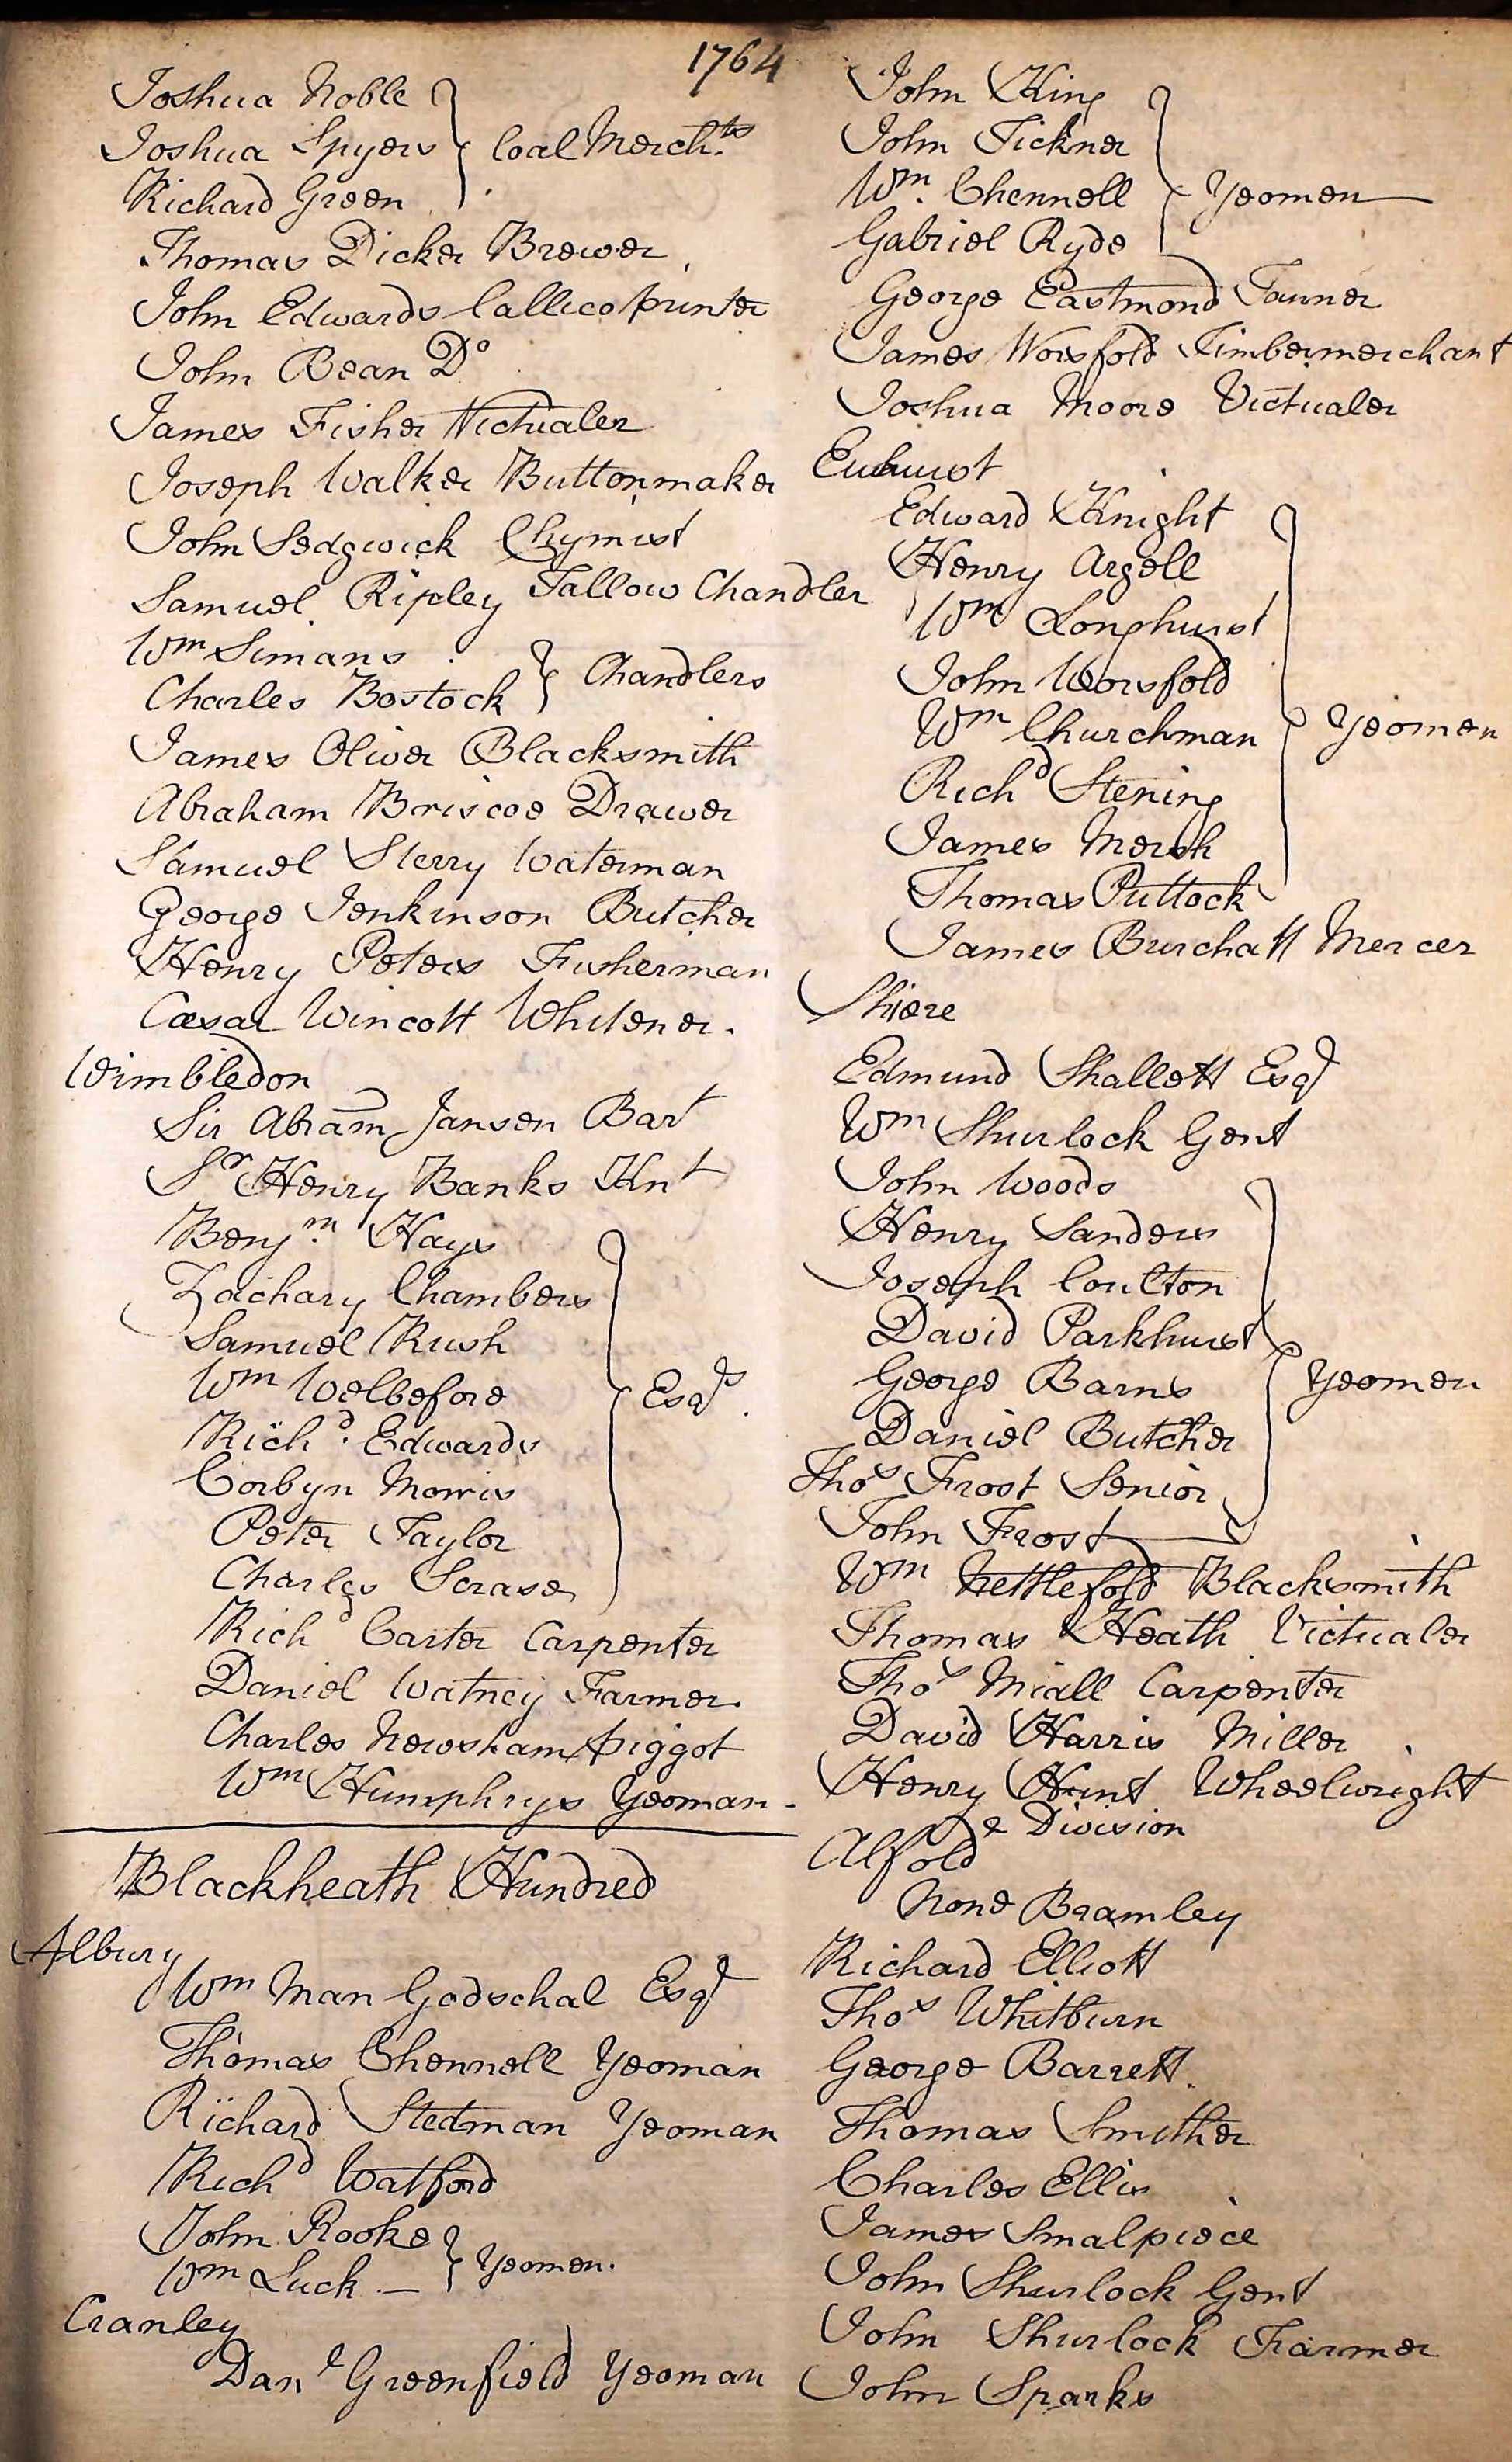 1764
Joshua Noble
Joshua Spyers } Coal Mercht.s
Richard Green
Thomas Dicker Brewer
John Edwards Callico printer
John Bean Do
James Fisher Victualer
Joseph Walker Buttonmaker
John Sedgwick Chymist
Samuel Ripley Tallow Chandler
Wm Simans
Charles Bostock } Chandlers
James Oliver Blacksmith
Abraham Briscoe Drawer
Samuel Sterry Waterman
George Jenkinson Butcher
Henry Peters Fisherman
Cæsar Wincott Whitener.
Wimbledon
Sir Abram Jansen Bart
Sr Henry Banks Knt
Benjm. Hays
Zachary Chambers
Samuel Rush
Wm Welbeford } Esqrs.
Richd. Edwards
Corbyn Morris
Peter Taylor
Charles Scrase
Richd Carter Carpenter
Daniel Watney Farmer.
Charles Newsham piggot
Wm Humphrys Yeoman.
Blackheath Hundred
Albury
Wm Man Godschal Esqr
Thomas Chennell Yeoman
Richard Stedman Yeoman
Richd Watford
John Rooke
Wm Luck — } Yeomen.
Cranley
Danl Greenfield Yeoman
John King
John Tickner
Wm. Chennell } Yeomen
Gabriel Ryde
George Eastmond Tanner
James Worsfold Timbermerchant
Joshua Moore Victualer
Ewhurst
Edward Knight
Henry Argell
Wm Longhurst
John Worsfold
Wm Churchman } Yeomen
Richd Stening
James Mersh
Thomas Puttock
James Burchatt Mercer
Shiere
Edmund Shallett Esqr
Wm Shurlock Gent
John Woods
Henry Sanders
Joseph Coulton
David Parkhurst
George Barns } Yeomen
Daniel Butcher
Thos Frost Senior
John Frost
Wm Nettlefold Blacksmith
Thomas Heath Victualer
Thos Miall Carpenter
David Harris Miller
Henry Hunt Wheelwright
2d Division
Alfold
None Bramley
Richard Elliott
Thos Whitburn
George Barrett.
Thomas Smither
Charles Ellis
James Smalpiece
John Shurlock Gent
John Shurlock Farmer
John Sparks